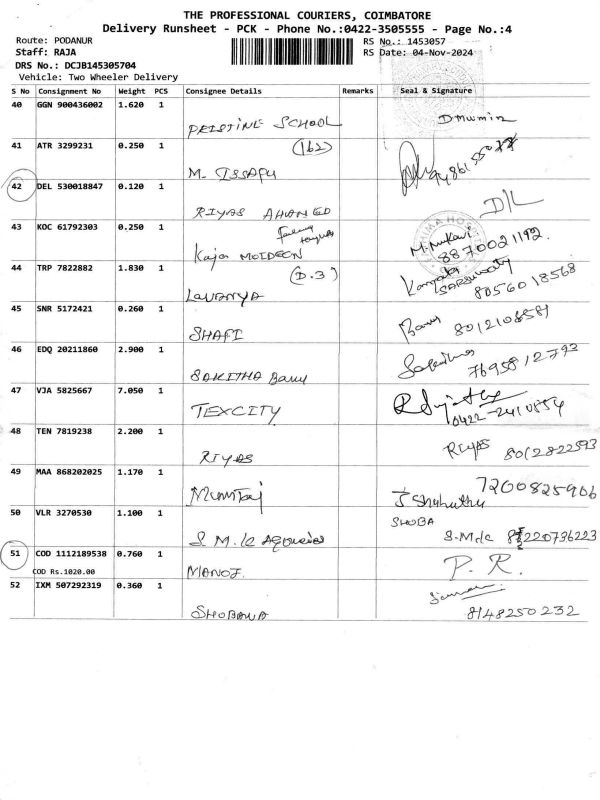 THE PROFESSIONAL COURIERS, COIMBATORE
Delivery Runsheet - PCK - Phone No.:0422-3505555 - Page No.:4
Route: PODANUR RS No.: 1453057
Staff: RAJA RS Date: 04-Nov-2024
DRS No.: DCJB145305704
Vehicle: Two Wheeler Delivery
S No Consignment No Weight PCS Consignee Details Remarks Seal & Signature
40 GGN 900436002 1.620 1
PRISTINE SCHOOL Dmumin
41 ATR 3299231 0.250 1 (162)
M. ISSAFU
42 DEL 530018847 0.120 1
RIYAS AHAMED D/L
43 KOC 61792303 0.250 1
Kaja MOIDEEN 8870021192.
44 TRP 7822882 1.830 1 (D.3)
LAVANYA 8056018568
45 SNR 5172421 0.260 1
SHAFI 8012108581
46 EDQ 20211860 2.900 1
SAKITHA Banu 7695812793
47 VJA 5825667 7.050 1
TEXCITY 0422-2410854
48 TEN 7819238 2.200 1
RIYAS RIYAS 8012822593
49 MAA 868202025 1.170 1
Mumtaj 7200825906
50 VLR 3270530 1.100 1 SHOBA
S.M.K
51 COD 1112189538 0.760 1
COD Rs.1020.00 MANOJ. P. R.
52 IXM 507292319 0.360 1
SHOBANA 8148250232